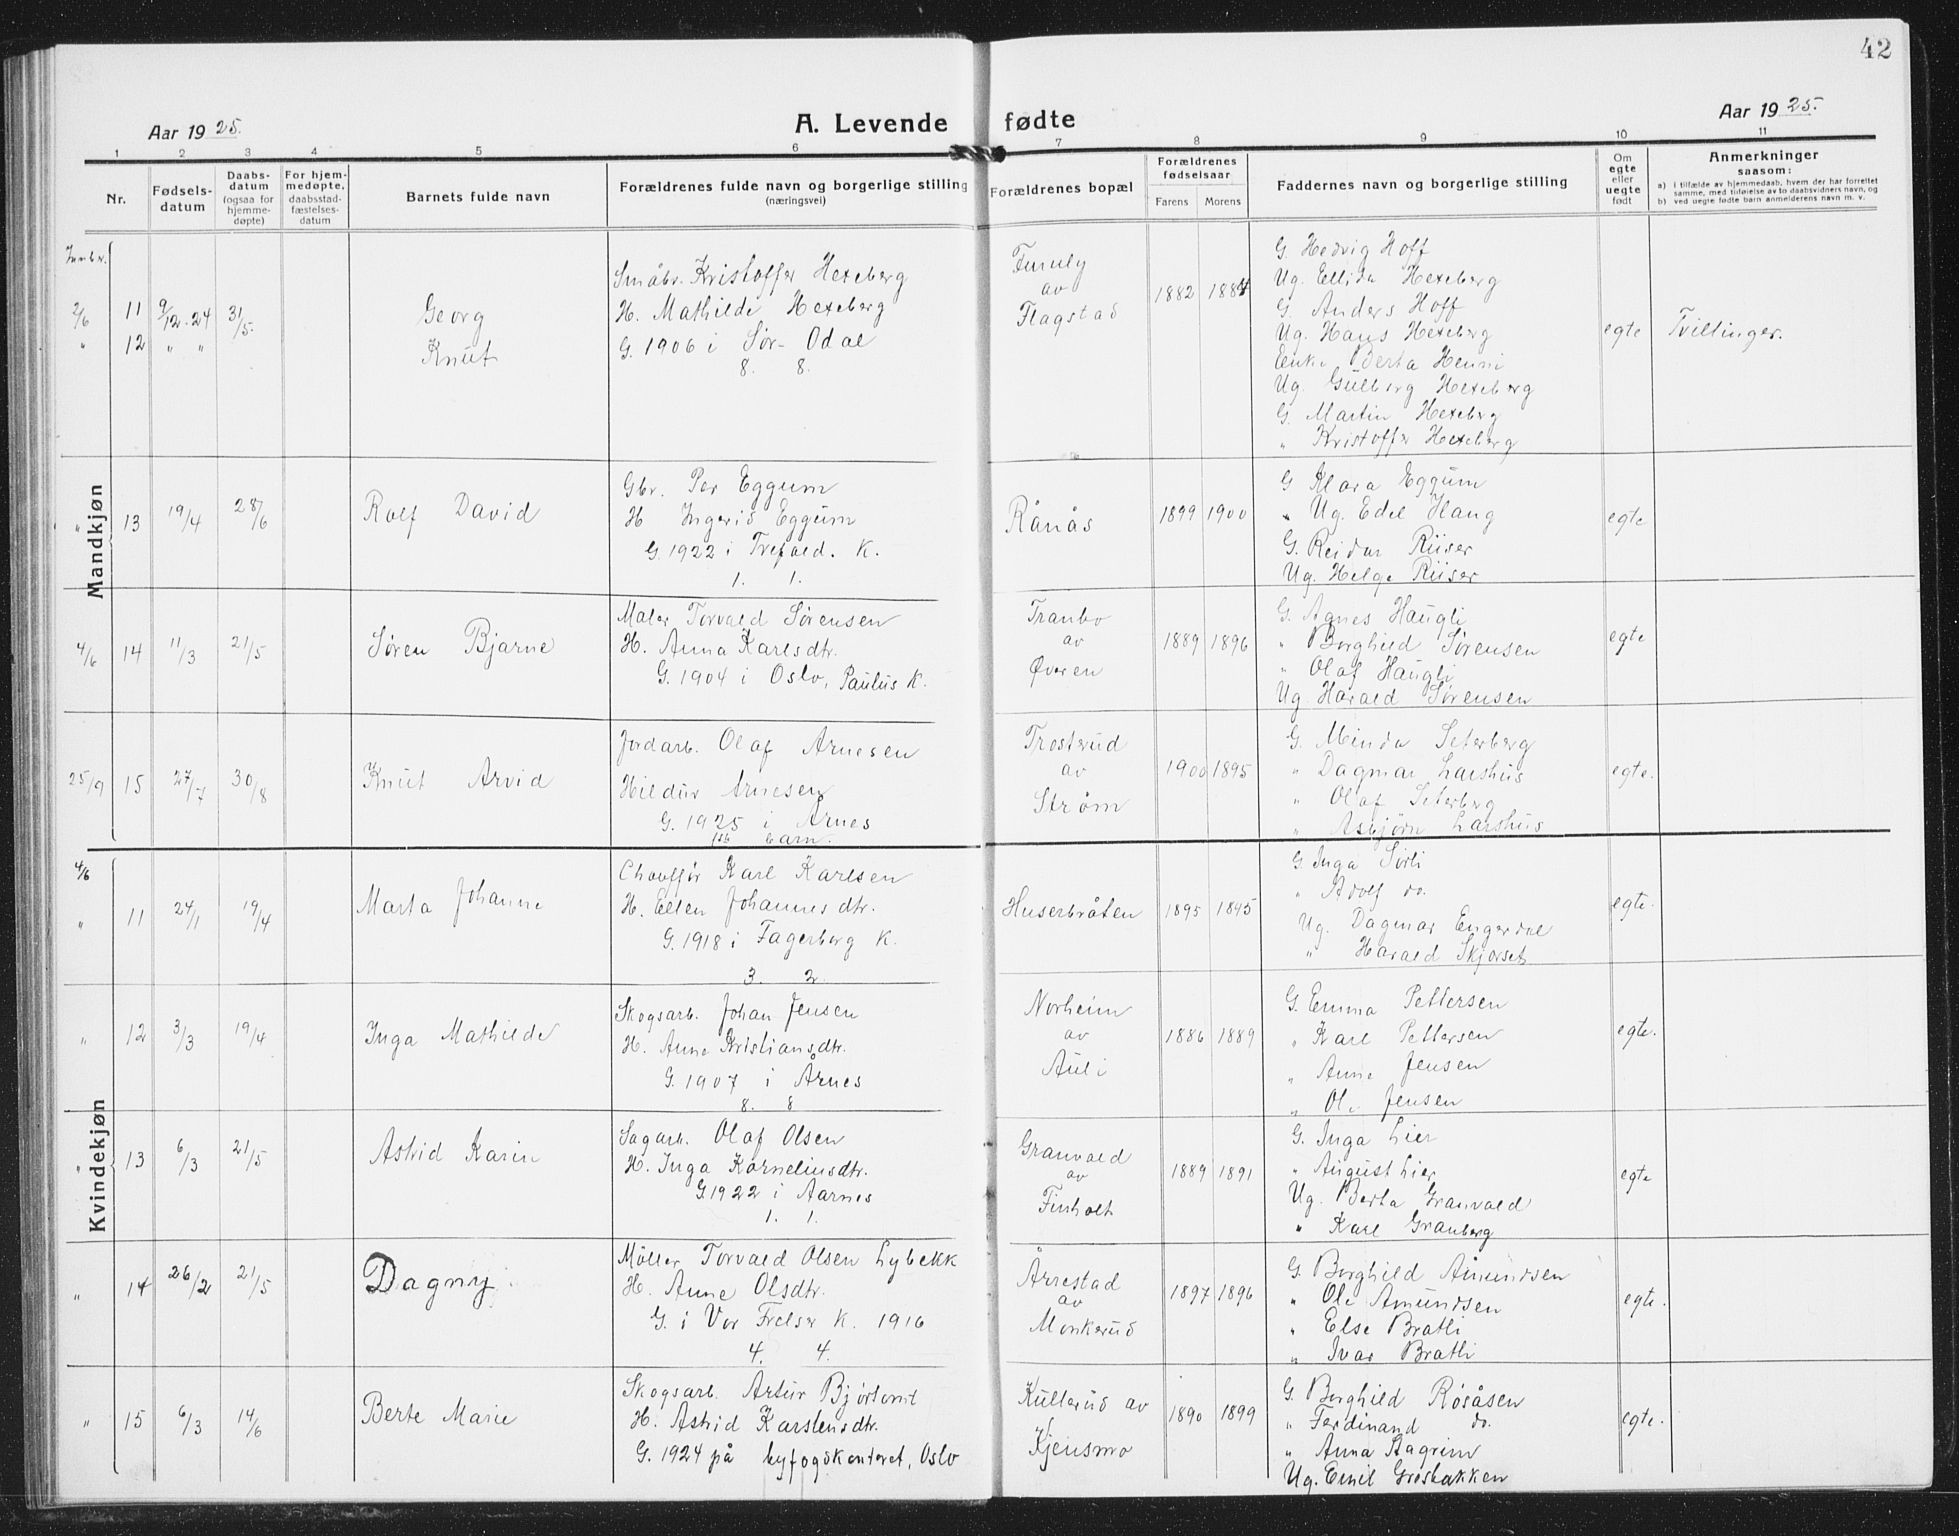 42
Aar 1925.
A. Levende fødte
Aar 1925.
1 2 3 4 5 6 7 8 9 10 11
Nr.
Fødselsdatum
Daabsdatum (ogsaa for hjemmedøpte)
For hjemmedøpte, daabsstadfæstelsesdatum
Barnets fulde navn
Forældrenes fulde navn og borgerlige stilling (næringsvei)
Forældrenes bopæl
Forældrenes fødselsaar
Farens Morens
Faddernes navn og borgerlige stilling
Om egte eller uegte født
Anmerkninger saasom:
a) i tilfælde av hjemmedaab, hvem der har forrettet samme, med tilføielse av to daabsvidners navn, og
b) ved uegte fødte barn anmelderens navn m. v.
Mandkjøn
2/6 11 9/12-24 31/5
" 12 " "
Georg
Knut
Småbr. Kristoffer Hexeberg
H. Mathilde Hexeberg
G. 1906 i Sør-Odal
8. 8.
av
Flagstad
1882 1884
G. Hedvig Hoff
Ug. Ellida Hexeberg
G. Anders Hoff
Ug. Hans Hexeberg
Enke Berta Henni
Ug. Gulborg Hexeberg
G. Martin Hexeberg
" Kristoffer Hexeberg
egte
Tvillinger.
" 13 19/4 28/6
Rolf David
Gbr. Per Eggum
H Ingerid Eggum
G. 1922 i Trefold. K.
1. 1.
Rånås
1899 1900
G Klara Eggum
" Ug. Edel Haug
G. Reidar Riiser
Ug. Helge Riiser
egte
4/6 14 11/3 21/5
Søren Bjarne
Maler Torvald Sørensen
H. Anna Karlsdtr.
G. 1904 i Oslo, Paulus K.
Tranbo
av
Øveren
1889 1896
G. Agnes Haugli
" Borghild Sørensen
" Olaf Haugli
Ug. Harald Sørensen
egte
25/9 15 27/7 30/8
Knut Arvid
Jordarb. Olaf Arnesen
Hildur Arnesen
G. 1925 i Årnes
1ste barn.
Trosterud
av
Strøm
1900 1895
G. Minda Seterberg
" Dagmar Larshus
" Olaf Seterberg
" Asbjørn Larshus
egte.
Kvindekjøn
4/6
" 11 24/1 19/4
Marta Johanne
Chauffør Karl Karlsen
H. Ellen Johannesdtr.
G. 1918 i Fagerborg K.
3. 2
Huserbråten
1895 1895
G Inga Sørli
" Adolf do.
Ug. Dagmar Engerdal
" Harald Skjørset
egte.
" 12 3/3 19/4
Inga Mathilde
Skogsarb. Johan Jensen
H. Anne Kristiansdtr.
G. 1907 i Årnes
8. 8
Norheim
av
Auli
1886 1889
G. Emma Pettersen
" Karl Pettersen
" Anne Jensen
" Ole Jensen
egte.
" 13 6/3 21/5
Astrid Karin
Sagarb. Olaf Olsen
H. Inga Korneliusdtr.
G. 1922 i Aarnes
1. 1.
Granvold
av
Finholt
1889 1891
G. Inga Lier
" August Lier
Ug. Berta Granvold
" Karl Granberg
egte
" 14 26/2 21/5
Dagny
Møller Torvald Olsen Lybekk
H. Anne Olsdtr.
G. i Vor Frelser K. 1916
4. 4.
Årrestad
av
Monkerud
1897 1896
G. Borghild Amundsen
" Ole Amundsen
" Else Bratli
" Ivar Bratli
egte.
" 15 6/3 14/6
Berte Marie
Skogsarb. Artur Bjørtomt
H. Astrid Karstensdtr.
G. 1924 på byfogdkontoret, Oslo
Kullerud av
Kjensmo
1890 1899
G. Borghild Rosåsen
" Ferdinand do.
" Anna Stagrim
Ug. Emil Grosbakken
egte.